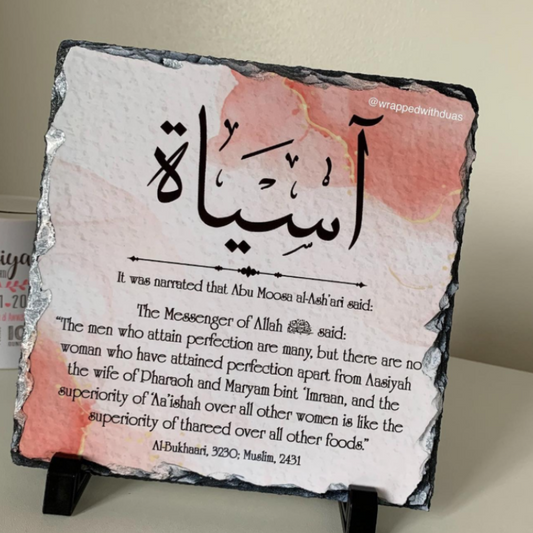 @wrappedwithduas
آسياة
It was narrated that Abu Moosa al-Ash'ari said:
The Messenger of Allah ﷺ said:
"The men who attain perfection are many, but there are no
woman who have attained perfection apart from Aasiyah
the wife of Pharaoh and Maryam bint 'Imraan, and the
superiority of 'Aa'ishah over all other women is like the
superiority of thareed over all other foods."
Al-Bukhaari, 3230; Muslim, 2431